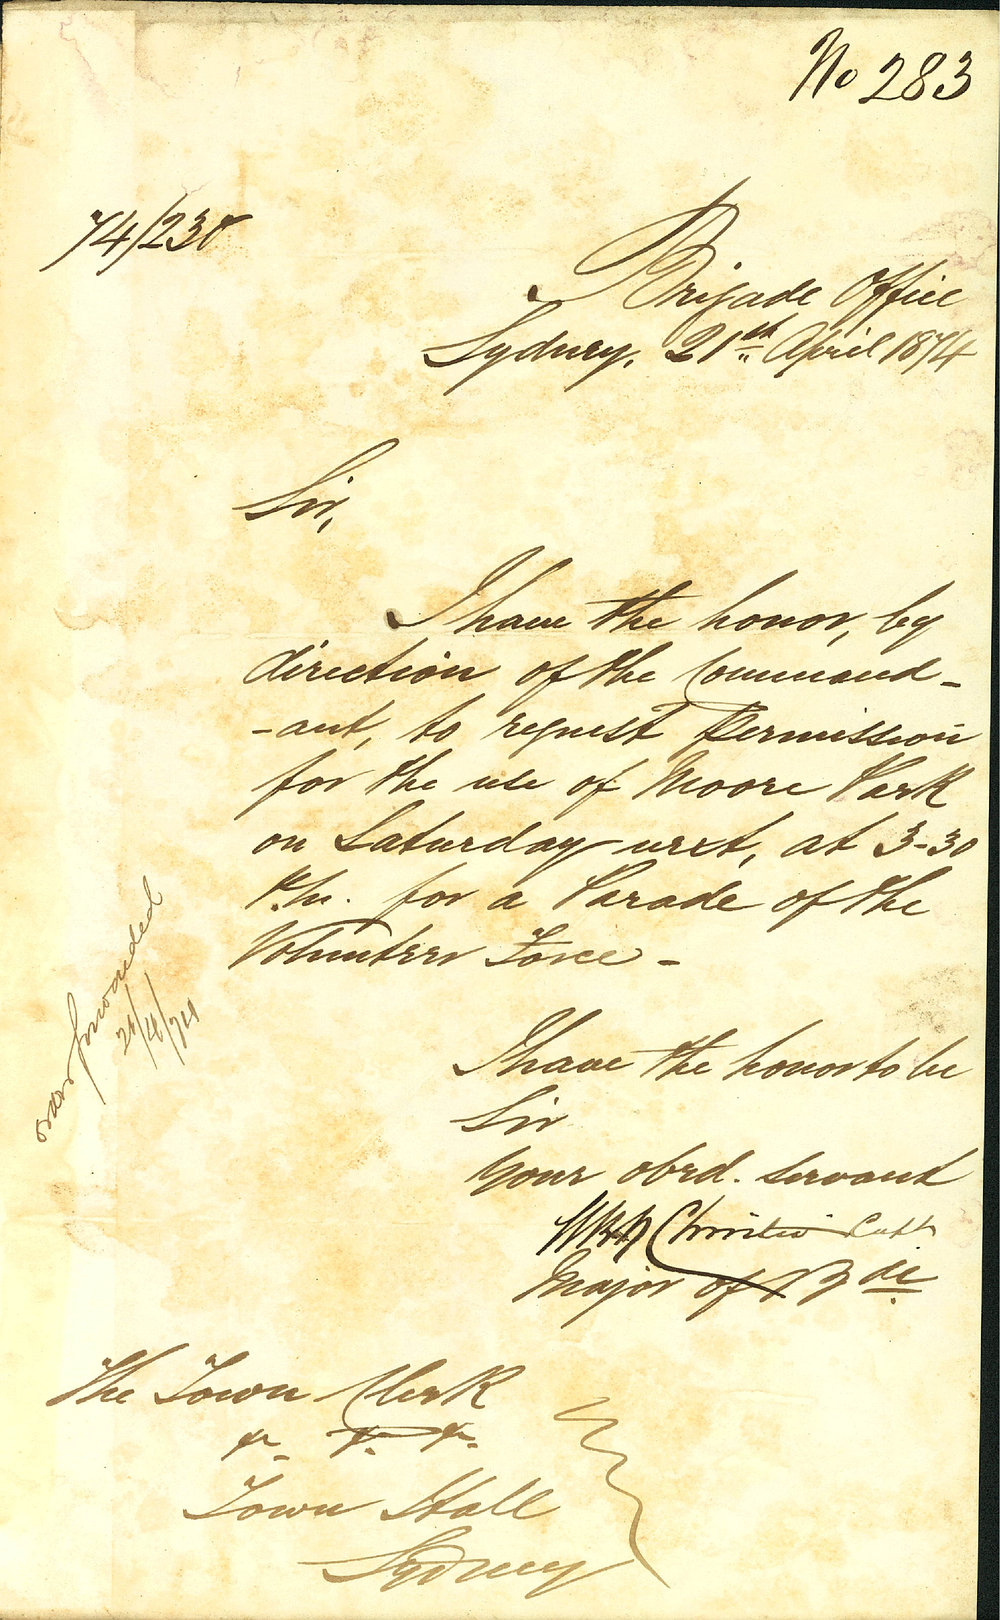 No 283
74/230
Brigade Office
Sydney, 21st April 1874
Sir,
I have the honor, by
direction of the Command-
-ant, to request Permission
for the use of Moore Park
on Saturday next, at 3-30
P.M. for a Parade of the
Volunteer Force -
forwarded
21/4/74
I have the honor to be
Sir
your obed. servant
Christie Capt
Major of Bde
The Town Clerk
&c. &c. &c.
Town Hall
Sydney